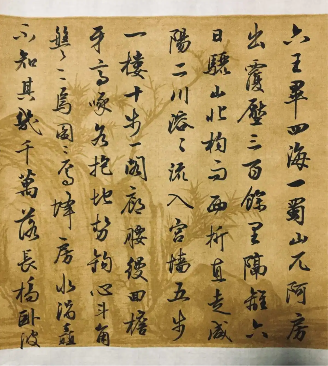 六王畢四海一蜀山兀阿房
出覆壓三百餘里隔離天
日驪山北構而西折直走咸
陽二川溶〻流入宮墻五步
一樓十步一閣廊腰縵回檐
牙高啄各抱地勢鉤心斗角
盤〻焉囷〻焉蜂房水渦矗
不知其幾千萬落長橋臥波